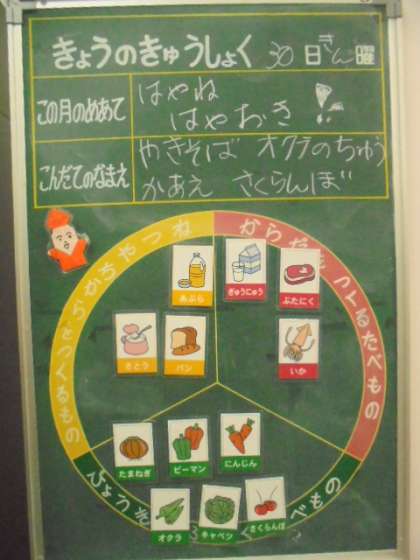 きょうのきゅうしょく 30日きん曜
この月のめあて
はやね
はやおき
こんだてのなまえ
やきそば オクラのちゅう
かあえ さくらんぼ
ちからやねつ
をつくるもの
からだをつくるたべもの
あぶら
ぎゅうにゅう
ぶたにく
さとう
パン
いか
たまねぎ
ピーマン
にんじん
オクラ
キャベツ
さくらんぼ
べもの